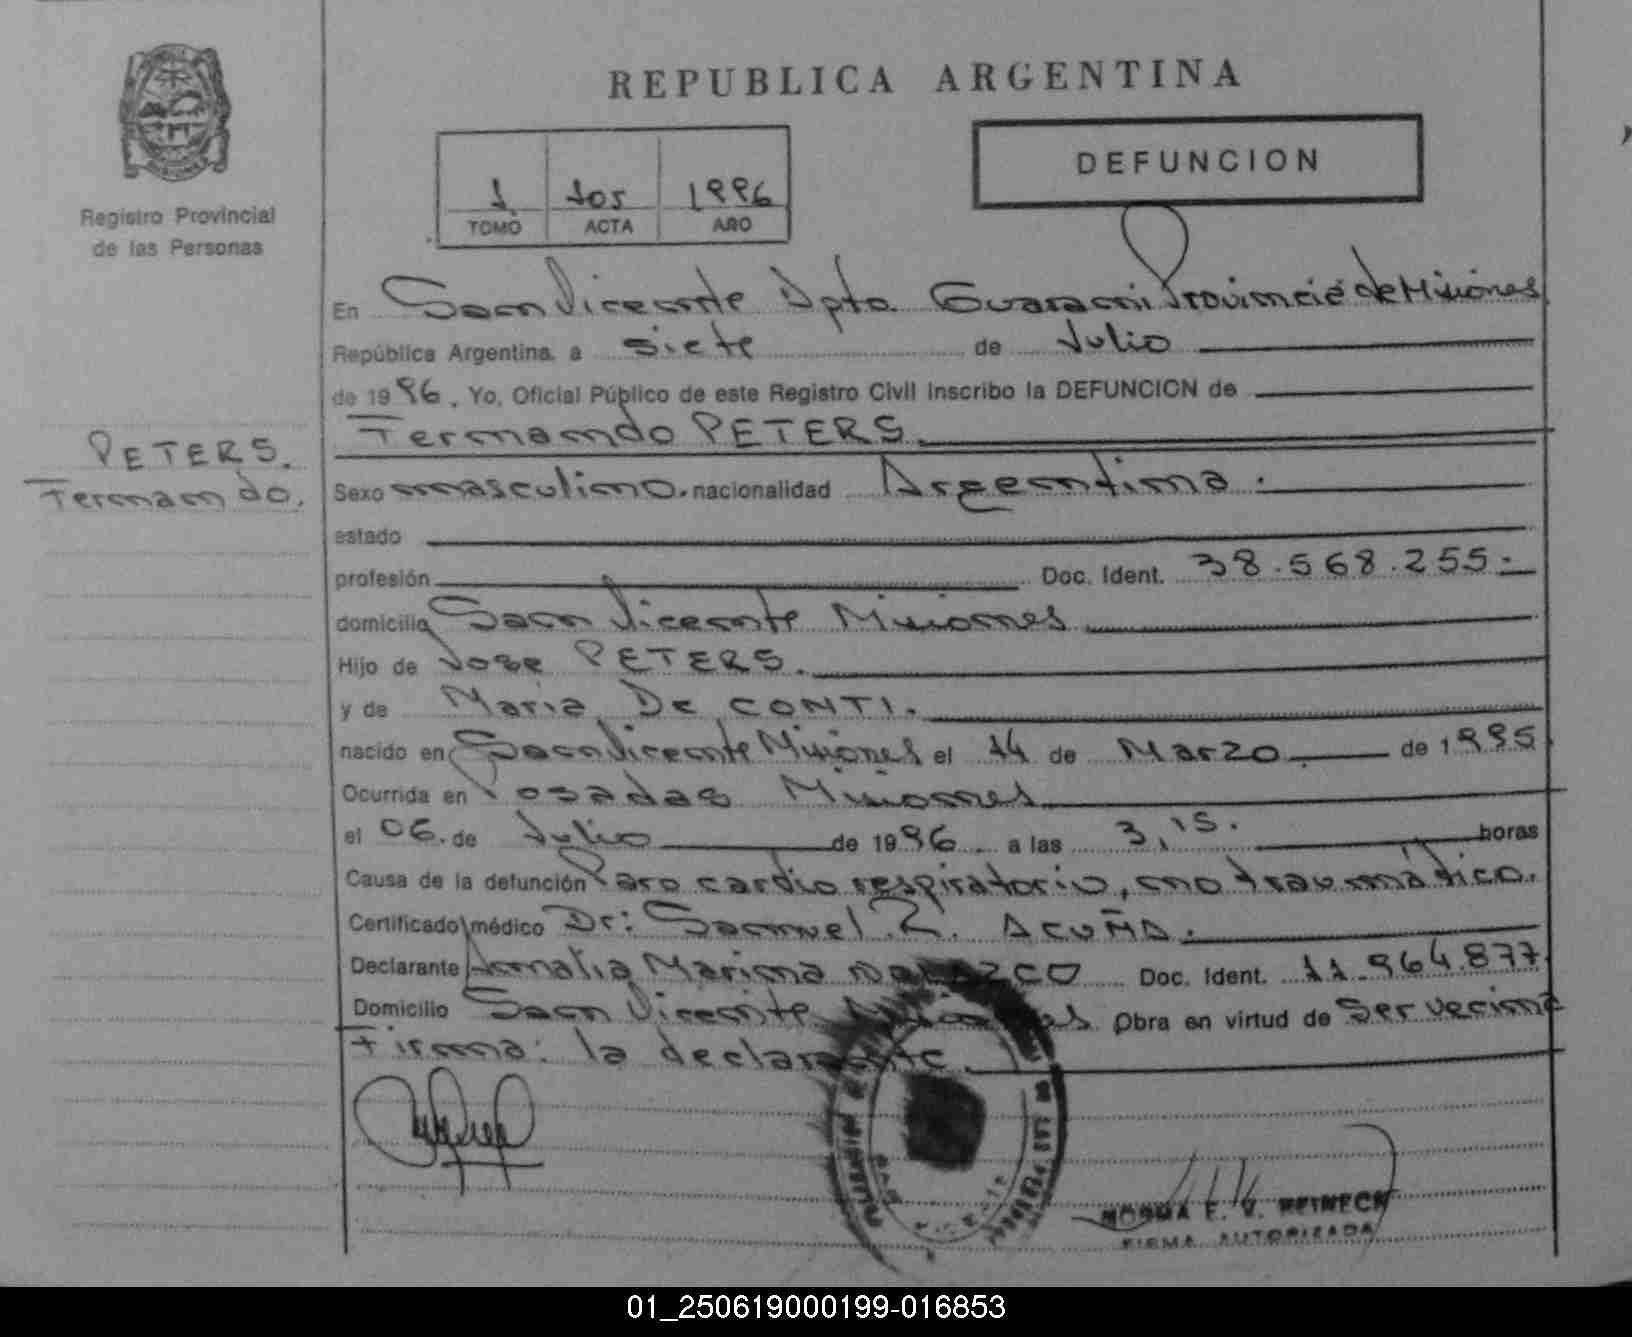 REPUBLICA ARGENTINA
DEFUNCION
1 105 1996
TOMO ACTA AÑO
Registro Provincial
de las Personas
En San Vicente Dpto. Guarani Provincia de Misiones
República Argentina, a siete de Julio
de 1996. Yo, Oficial Público de este Registro Civil inscribo la DEFUNCION de
Fernando PETERS.
PETERS.
Fernando.
Sexo masculino. nacionalidad Argentina.
estado
profesión Doc. Ident. 38.568.255.-
domicilio San Vicente Misiones
Hijo de Jose PETERS.
y de Maria De CONTI.
nacido en San Vicente Misiones el 14 de Marzo de 1995
Ocurrida en Posadas Misiones
el 06. de Julio de 1996. a las 3,15. horas
Causa de la defunción Paro cardio respiratorio, no traumático.
Certificado médico Dr: Samuel R. ACUÑA.
Declarante Amalia Marina Doc. Ident. 11.964.877
Domicilio San Vicente Misiones Obra en virtud de Ser vecina
Firma: la declarante.
NORMA E. V. REINECK
FIRMA AUTORIZADA
01_250619000199-016853